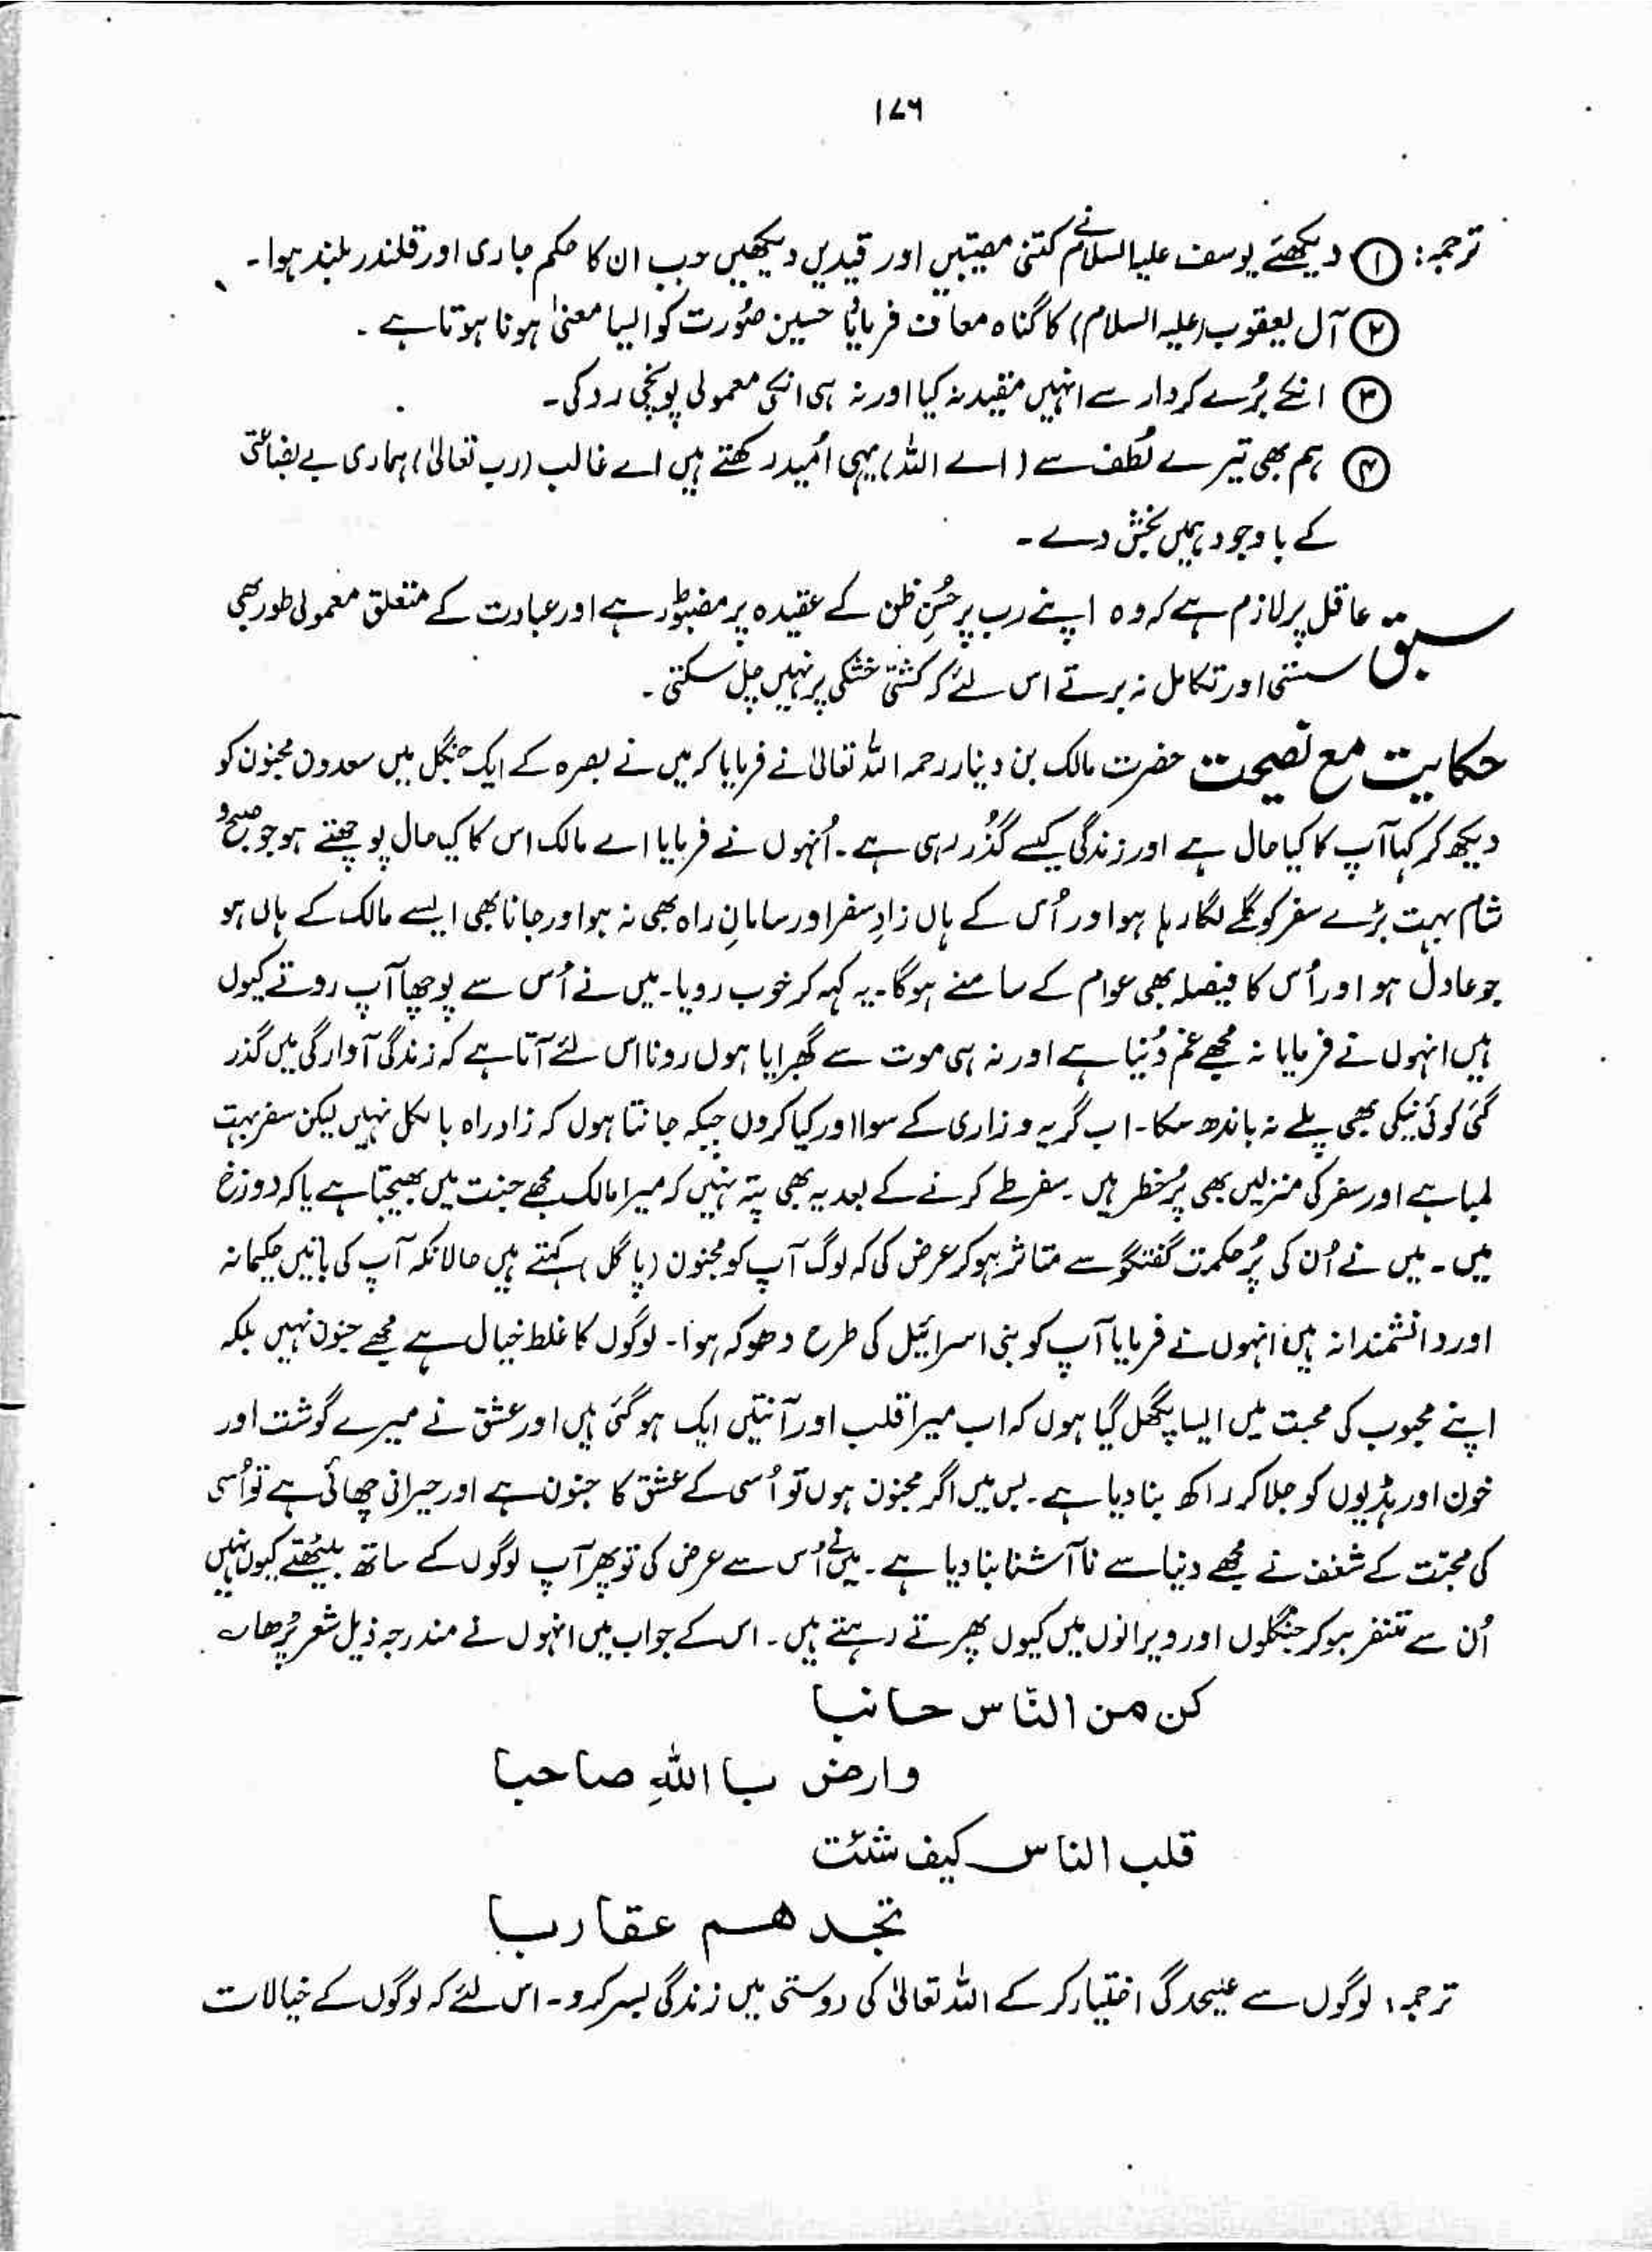 ۱۷۶
ترجمہ: ① دیکھئے یوسف علیہ السلام نے کتنی مصیبتیں اور قیدیں دیکھیں جب ان کا حکم جاری اور قلندر بلند ہوا۔
② آل یعقوب (علیہ السلام) کا گناہ معاف فرمایا حسین صُورت کو ایسا معنیٰ ہونا ہوتا ہے ۔
③ انکے بُرے کردار سے انہیں مقید نہ کیا اور نہ ہی انکی معمولی پونجی رد کی۔
④ ہم بھی تیرے لُطف سے (اے اللہ) یہی اُمید رکھتے ہیں اے غالب (رب تعالیٰ) ہماری بے بضاعتی
کے باوجود ہمیں بخش دے ۔
سبق عاقل پر لازم ہے کہ وہ اپنے رب پر حُسنِ ظن کے عقیدہ پر مضبوط رہے اور عبادت کے متعلق معمولی طور بھی
سستی اور تکاسل نہ برتے اس لئے کہ کشتی خشکی پر نہیں چل سکتی ۔
حکایت مع نصیحت حضرت مالک بن دینار رحمہ اللہ تعالیٰ نے فرمایا کہ میں نے بصرہ کے ایک جنگل میں سعدون مجنون کو
دیکھ کر کہا آپ کا کیا حال ہے اور زندگی کیسے گذُر رہی ہے ۔ اُنہوں نے فرمایا اے مالک اس کا کیا حال پوچھتے ہو جو صبح و
شام بہت بڑے سفر کو گلے لگا رہا ہو اور اُس کے ہاں زادِ سفر اور سامانِ راہ بھی نہ ہو اور جانا بھی ایسے مالک کے ہاں ہو
جو عادل ہو اور اُس کا فیصلہ بھی عوام کے سامنے ہوگا ۔ یہ کہہ کر خوب رویا ۔ میں نے اُس سے پوچھا آپ روتے کیوں
ہیں انہوں نے فرمایا نہ مجھے غم دُنیا ہے اور نہ ہی موت سے گھبرایا ہوں رونا اس لئے آتا ہے کہ زندگی آوارگی میں گذر
گئی کوئی نیکی بھی پلے نہ باندھ سکا ۔ اب گریہ و زاری کے سوا اور کیا کروں جبکہ جانتا ہوں کہ زاد راہ بالکل نہیں لیکن سفر بہت
لمبا ہے اور سفر کی منزلیں بھی پُرخطر ہیں ۔ سفر طے کرنے کے بعد یہ بھی پتہ نہیں کہ میرا مالک مجھے جنت میں بھیجتا ہے یا کہ دوزخ
میں ۔ میں نے اُن کی پُر حکمت گفتگو سے متاثر ہوکر عرض کی کہ لوگ آپ کو مجنون (پاگل) کہتے ہیں حالانکہ آپ کی باتیں حکیمانہ
اور دانشمندانہ ہیں انہوں نے فرمایا آپ کو بنی اسرائیل کی طرح دھوکہ ہوا ۔ لوگوں کا غلط خیال ہے مجھے جنون نہیں بلکہ
اپنے محبوب کی محبت میں ایسا پگھل گیا ہوں کہ اب میرا قلب اور آنتیں ایک ہو گئی ہیں اور عشق نے میرے گوشت اور
خون اور ہڈیوں کو جلا کر راکھ بنا دیا ہے ۔ بس میں اگر مجنون ہوں تو اُسی کے عشق کا جنون ہے اور حیرانی چھائی ہے تو اُسی
کی محبّت کے شغف نے مجھے دنیا سے ناآشنا بنا دیا ہے ۔ میں نے اُس سے عرض کی تو پھر آپ لوگوں کے ساتھ بیٹھتے کیوں نہیں
اُن سے متنفر ہوکر جنگلوں اور ویرانوں میں کیوں پھرتے رہتے ہیں ۔ اس کے جواب میں انہوں نے مندرجہ ذیل شعر پڑھا ۔
کن من النّاس جانبا
وارض باللہِ صاحبا
قلب الناس کیف شئت
تجدھم عقاربا
ترجمہ: لوگوں سے علیٰحدگی اختیار کر کے اللہ تعالیٰ کی دوستی میں زندگی بسر کرو ۔ اس لئے کہ لوگوں کے خیالات